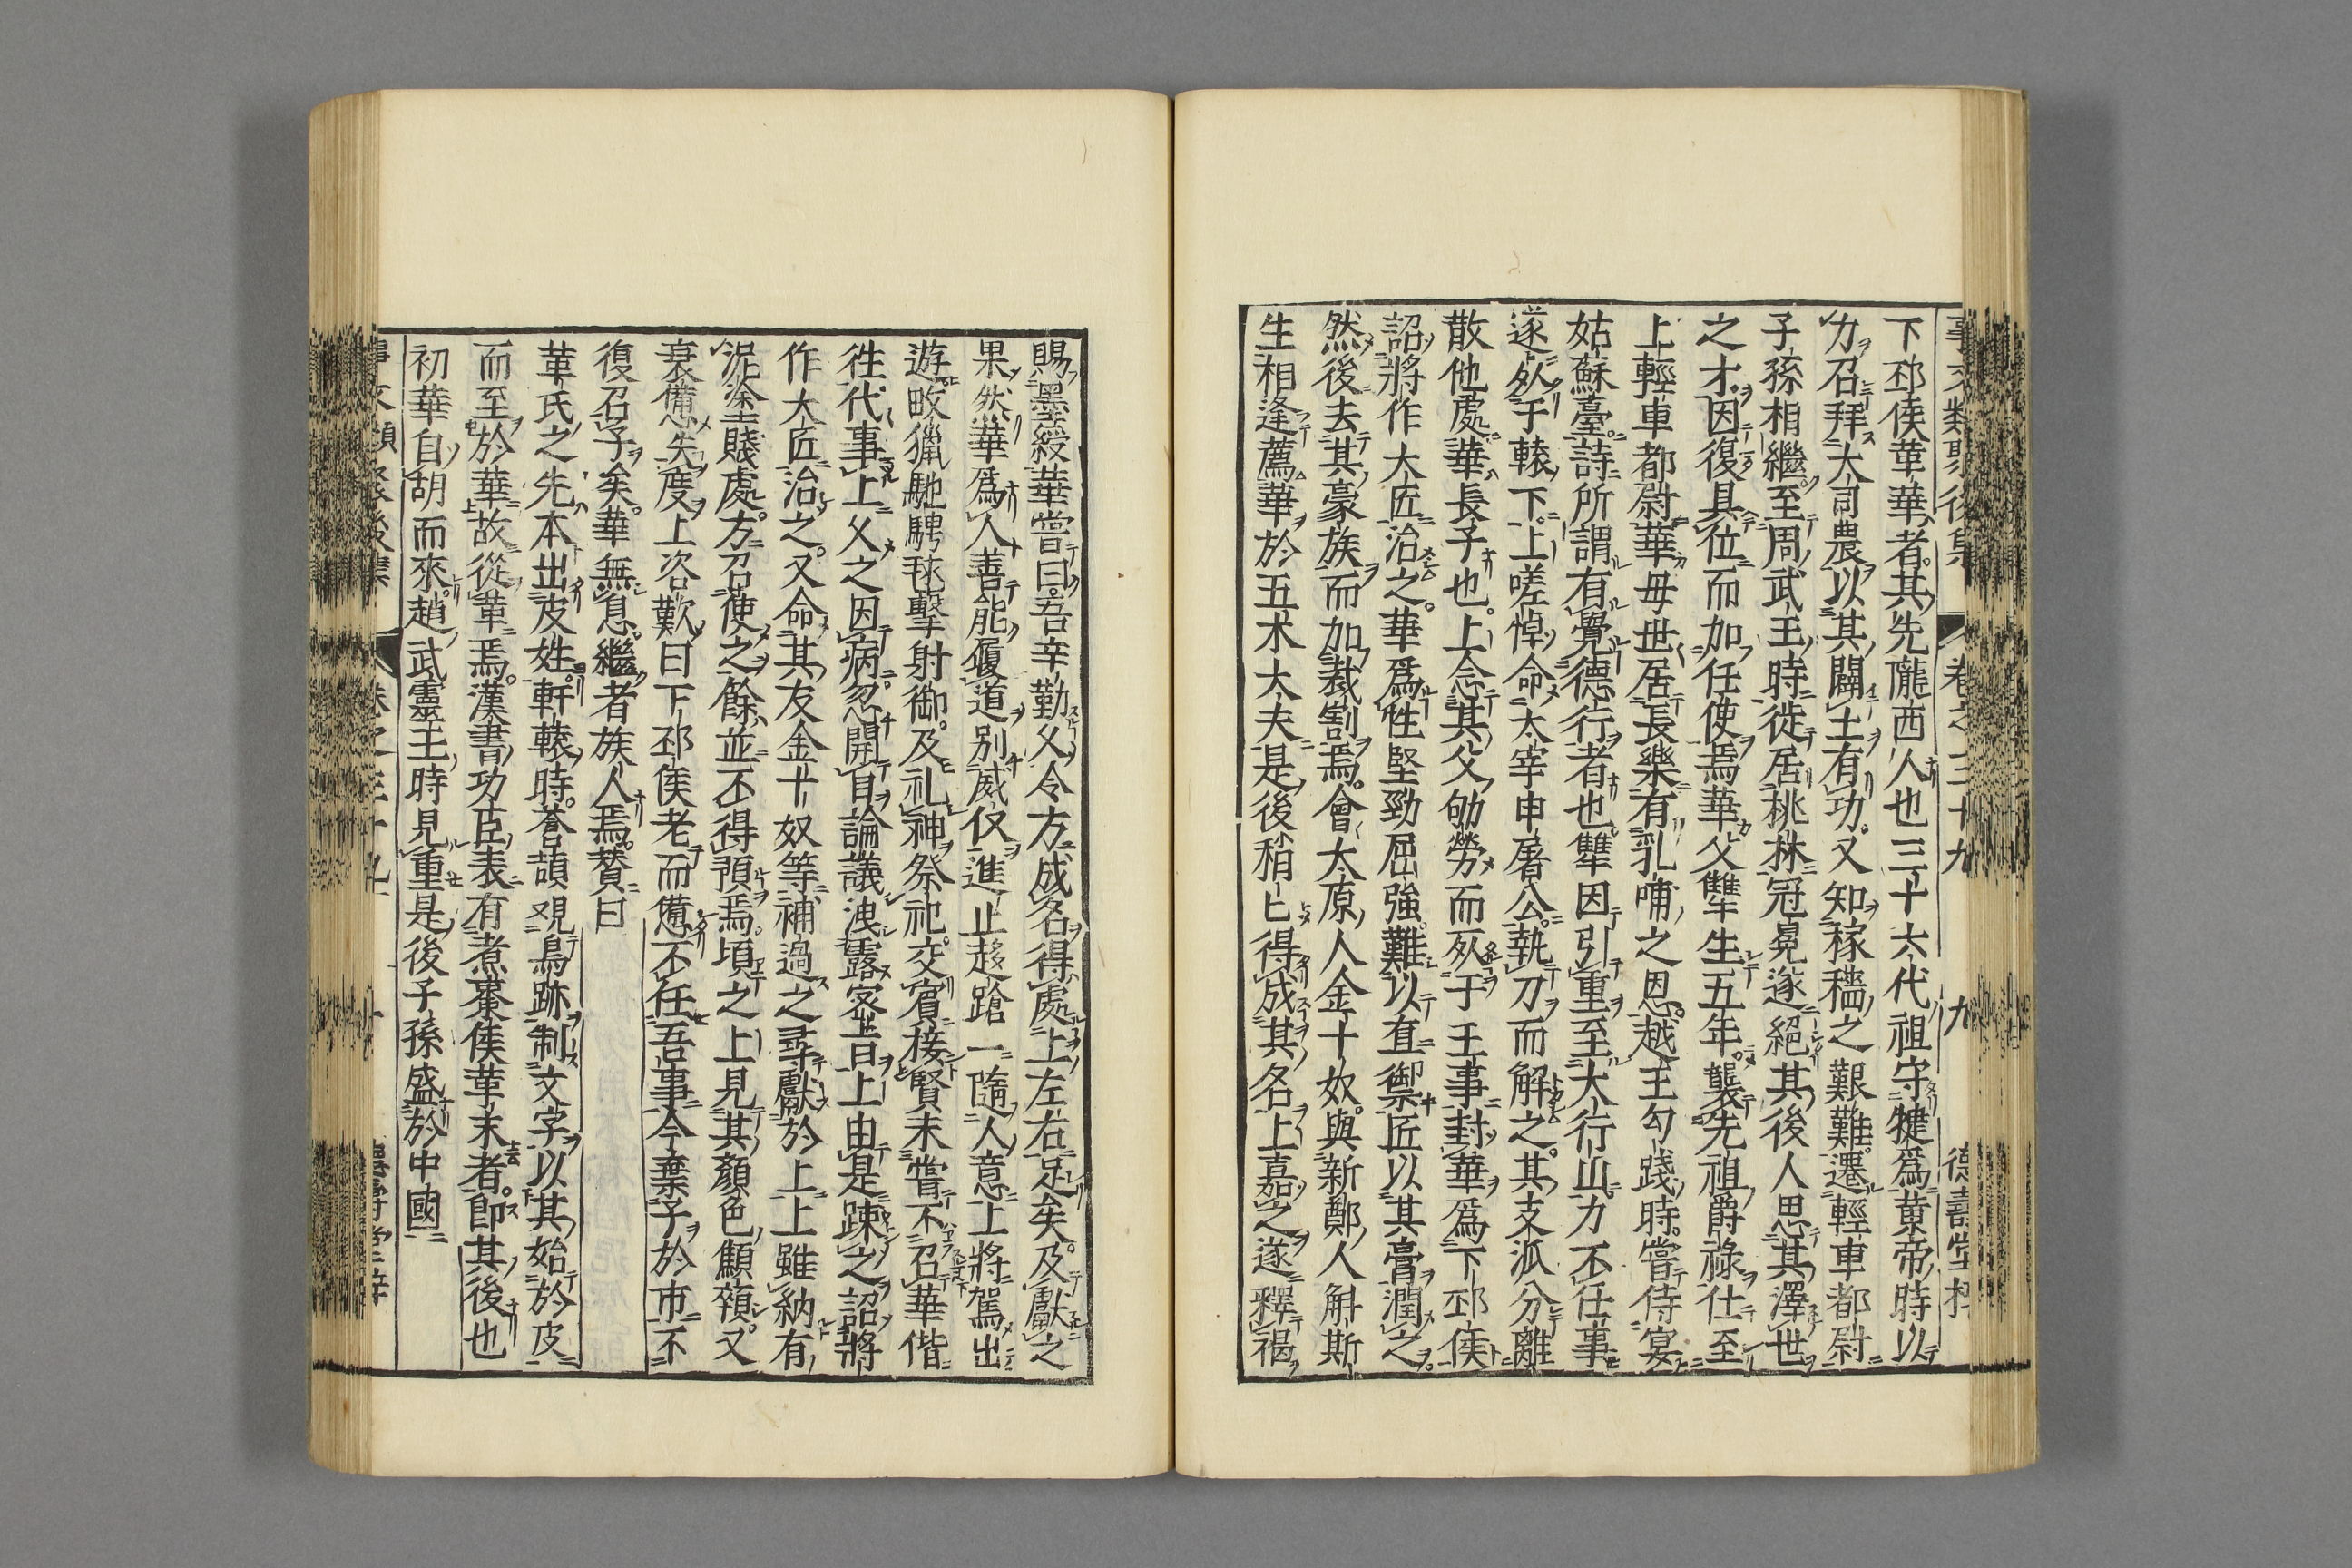 事文類聚後集 卷之三十九 九 德壽堂梓
下邳侯革華者其先隴西人也三十六代祖守犍爲黄帝時以
力召拜大司農以其闢土有功又知稼穡之艱難遷輕車都尉
子孫相繼至周武王時徙居桃林冠冕遂絕其後人思其澤世
之才因復具位而加任使焉華父犨生五年襲先祖爵祿仕至
上輕車都尉華母世居長樂有乳哺之恩越王勾踐時嘗侍宴
姑蘇臺詩所謂有覺德行者也犨因引重至大行山力不任事
遂死于轅下上嗟悼命太宰申屠公執刀而解之其支派分離
散他處華長子也上念其父劬勞而死于王事封華爲下邳侯
詔將作大匠治之華爲性堅勁屈強難以直禦匠以其膏潤之
然後去其豪族而加裁割焉會太原人金十奴與新鄭人斛斯
生相逢薦華於五木大夫是後稍々得成其名上嘉之遂釋褐
賜墨綬華嘗曰吾辛勤父令方成名得處上左右足矣及獻之
果然華爲人善能履道別威仪進止趍蹌一隨人意上將駕出
遊畋獵馳騁毬擊射御及礼神祭祀交賓接賢未嘗不召華偕
徃代事上父之因病忽開自論議洩露密旨上由是踈之詔將
作大匠治之又命其友金十奴等補過之尋獻於上上雖納有
泥塗賤處方召使之餘並不得預焉頃之上見其顏色顦顇又
衰憊失度上咨歎曰下邳侯老而憊不任吾事今棄子於市不
復召子矣華無息繼者族人焉賛曰
革氏之先本出皮姓軒轅時蒼頡覌鳥跡制文字以其始於皮
而至於華故從革焉漢書功臣表有煮棗侯革末者即其後也
初華自胡而來趙武靈王時見重是後子孫盛於中國